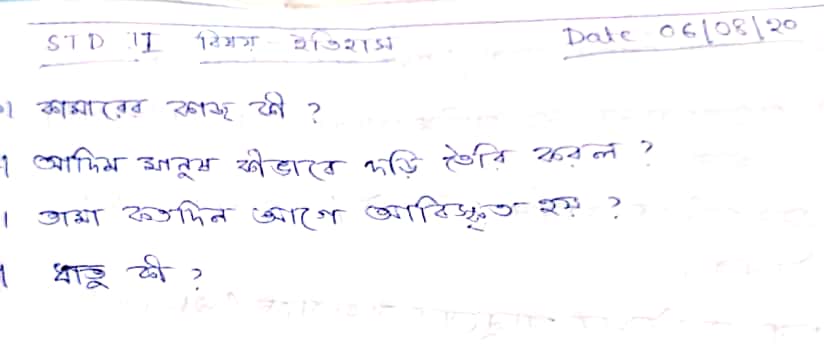 STD II বিষয় - ইতিহাস Date 06/08/20
১। কামারের কাজ কী ?
। আদিম মানুষ কীভাবে দড়ি তৈরি করল ?
। তামা কতদিন আগে আবিস্কৃত হয় ?
। ধাতু কী ?